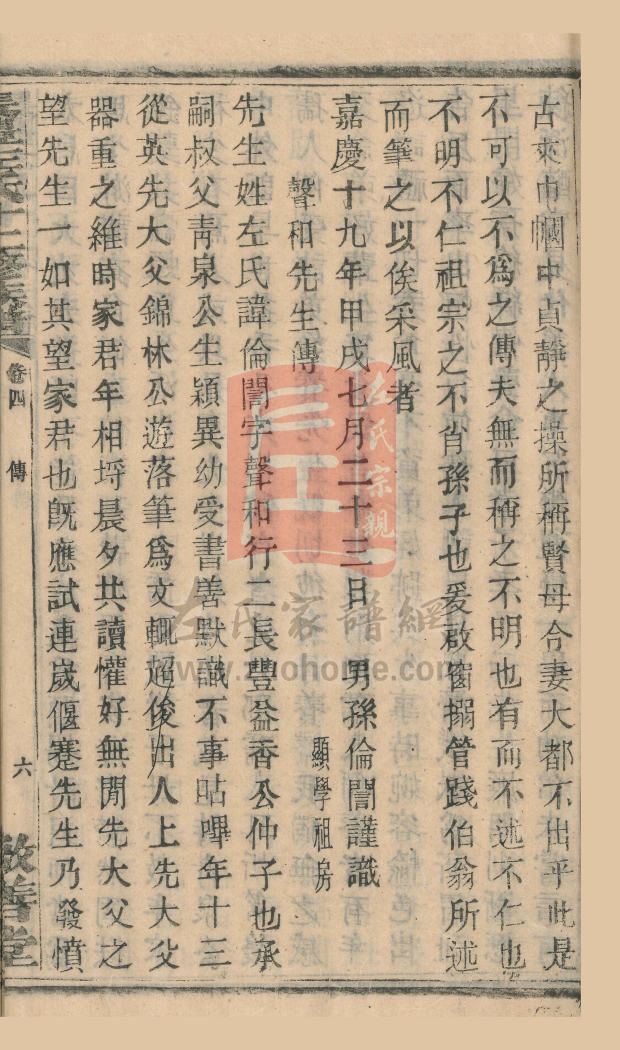 古來巾幗中貞靜之操所稱賢母令妻大都不出乎此是
不可以不爲之傳夫無而稱之不明也有而不述不仁也
不明不仁祖宗之不肖孫子也爰啟窗搦管踐伯翁所述
而筆之以俟采風者
嘉慶十九年甲戌七月二十三日 男孫倫誾謹識
聲和先生傳 顯學祖房
先生姓左氏諱倫誾字聲和行二長豐益香公仲子也承
嗣叔父靑泉公生穎異幼受書善默識不事呫嗶年十三
從英先大父錦林公遊落筆爲文輒超後出人上先大父
器重之維時家君年相埒晨夕共讀懽好無閒先大父之
望先生一如其望家君也旣應試連歲偃蹇先生乃發憤
卷四 傳 六
敬書堂
左氏宗親
左氏家譜網
www.zuohome.com